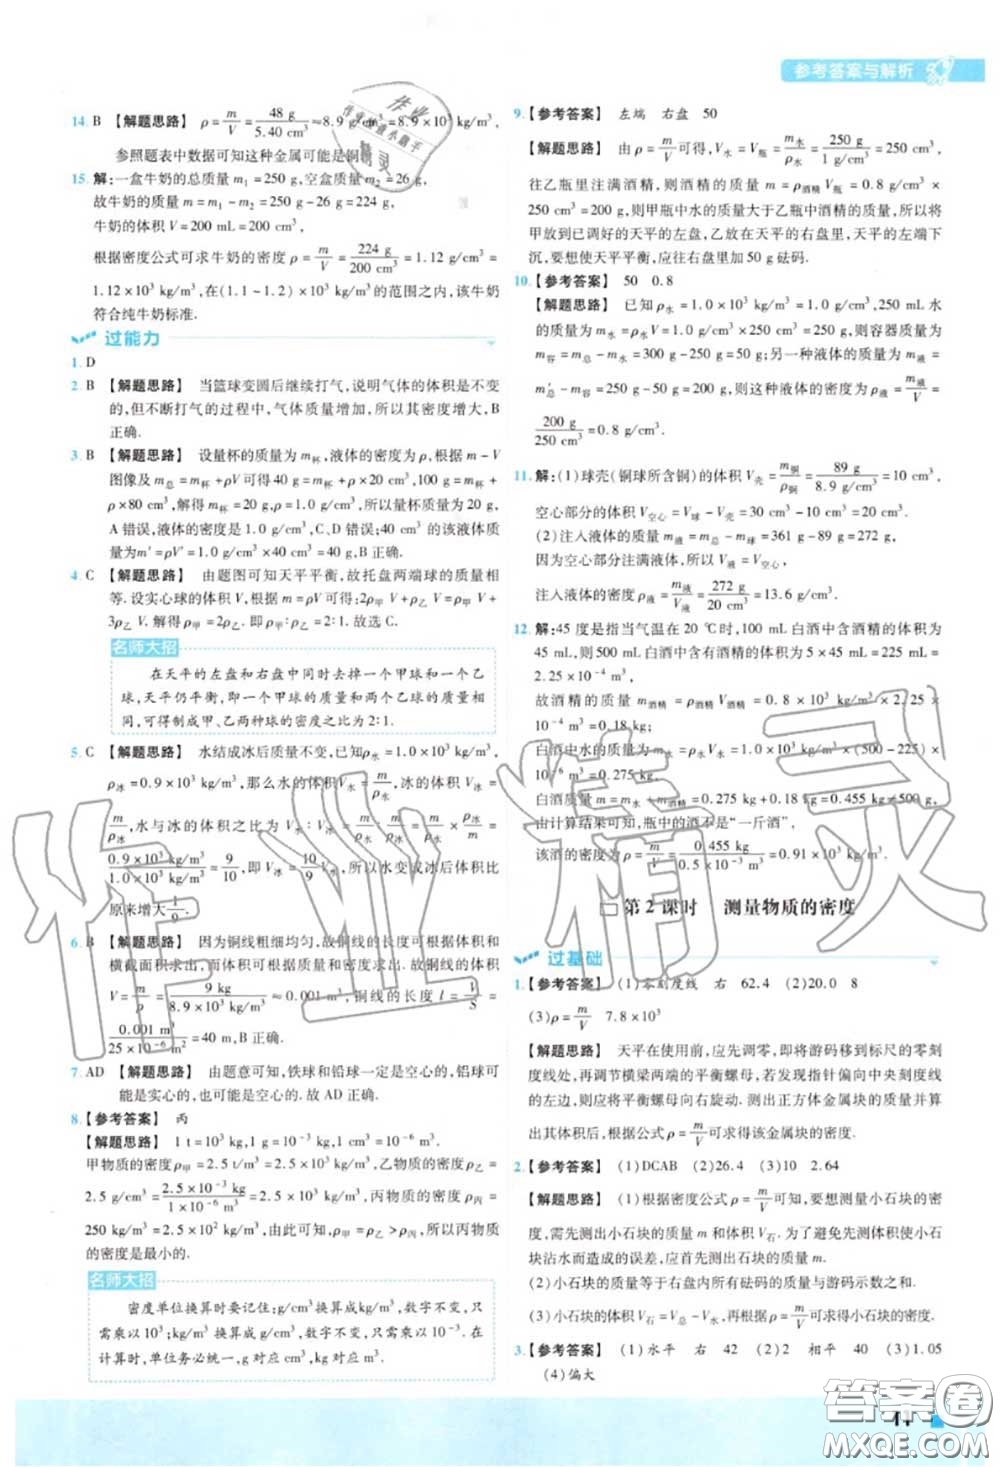 参考答案与解析
14. B 【解题思路】 ρ = m/V = 48 g/5.40 cm³ ≈ 8.9 g/cm³ = 8.9×10³ kg/m³,
参照题表中数据可知这种金属可能是铜.
15. 解:一盒牛奶的总质量 m₁ = 250 g,空盒质量 m₂ = 26 g,
故牛奶的质量 m = m₁ - m₂ = 250 g - 26 g = 224 g,
牛奶的体积 V = 200 mL = 200 cm³,
根据密度公式可求牛奶的密度 ρ = m/V = 224 g/200 cm³ = 1.12 g/cm³ =
1.12×10³ kg/m³,在(1.1~1.2)×10³ kg/m³ 的范围之内,该牛奶
符合纯牛奶标准.
过能力
1. D
2. B 【解题思路】 当篮球变圆后继续打气,说明气体的体积是不变
的,但不断打气的过程中,气体质量增加,所以其密度增大,B
正确.
3. B 【解题思路】 设量杯的质量为 m杯,液体的密度为 ρ,根据 m-V
图像及 m总 = m杯 + ρV 可得 40 g = m杯 + ρ×20 cm³,100 g = m杯
+ ρ×80 cm³,解得 m杯 = 20 g,ρ=1.0 g/cm³,所以量杯质量为 20 g,
A 错误,液体的密度是 1.0 g/cm³,C、D 错误;40 cm³ 的该液体质
量为 m′ = ρV′ = 1.0 g/cm³×40 cm³ = 40 g,B 正确.
4. C 【解题思路】 由题图可知天平平衡,故托盘两端球的质量相
等.设实心球的体积 V,根据 m = ρV 可得:2ρ甲 V+ρ乙 V = ρ甲 V+
3ρ乙 V.解得 ρ甲 = 2ρ乙.即 ρ甲:ρ乙 = 2:1.故选 C.
名师大招
在天平的左盘和右盘中同时去掉一个甲球和一个乙
球,天平仍平衡,即一个甲球的质量和两个乙球的质量相
同,可得制成甲、乙两种球的密度之比为 2:1.
5. C 【解题思路】 水结成冰后质量不变,已知 ρ水 = 1.0×10³ kg/m³,
ρ冰 = 0.9×10³ kg/m³,那么水的体积 V水 = m/ρ水,冰的体积 V冰 =
m/ρ冰,水与冰的体积之比为 V水:V冰 = m/ρ水 : m/ρ冰 = m/ρ水 × ρ冰/m = ρ冰/ρ水 =
0.9×10³ kg/m³/1.0×10³ kg/m³ = 9/10,即 V冰 = 10/9 V水,故水变成冰后体积比
原来增大 1/9.
6. B 【解题思路】 因为铜线粗细均匀,故铜线的长度可根据体积和
横截面积求出,而体积可根据质量和密度求出.故铜线的体积
V = m/ρ = 9 kg/8.9×10³ kg/m³ ≈ 0.001 m³,铜线的长度 l = V/S =
0.001 m³/25×10⁻⁶ m² = 40 m,B 正确.
7. AD 【解题思路】 由题意可知,铁球和铅球一定是空心的,铝球可
能是实心的,也可能是空心的.故 AD 正确.
8. 【参考答案】 丙
【解题思路】 1 t = 10³ kg,1 g = 10⁻³ kg,1 cm³ = 10⁻⁶ m³.
甲物质的密度 ρ甲 = 2.5 t/m³ = 2.5×10³ kg/m³,乙物质的密度 ρ乙 =
2.5 g/cm³ = 2.5×10⁻³ kg/1×10⁻⁶ m³ = 2.5×10³ kg/m³,丙物质的密度 ρ丙 =
250 kg/m³ = 2.5×10² kg/m³,由此可知,ρ甲 = ρ乙 > ρ丙,所以丙物质
的密度是最小的.
名师大招
密度单位换算时要记住:g/cm³ 换算成 kg/m³,数字不变,只
需乘以 10³;kg/m³ 换算成 g/cm³,数字不变,只需乘以 10⁻³.在
计算时,单位务必统一,g 对应 cm³,kg 对应 m³.
9. 【参考答案】 左端 右盘 50
【解题思路】 由 ρ = m/V 可得,V水 = V瓶 = m水/ρ水 = 250 g/1.0 g/cm³ = 250 cm³,
往乙瓶里注满酒精,则酒精的质量 m = ρ酒精 V瓶 = 0.8 g/cm³ ×
250 cm³ = 200 g,则甲瓶中水的质量大于乙瓶中酒精的质量,所以将
甲放到已调好的天平的左盘,乙放在天平的右盘里,天平左端下
沉,要想使天平平衡,应往右盘里加 50 g 砝码.
10. 【参考答案】 50 0.8
【解题思路】 已知 ρ水 = 1.0×10³ kg/m³ = 1.0 g/cm³,250 mL 水
的质量为 m水 = ρ水V水 = 1.0 g/cm³×250 cm³ = 250 g,则容器质量为
m容 = m总 - m水 = 300 g - 250 g = 50 g;另一种液体的质量为 m液 =
m′总 - m容 = 250 g - 50 g = 200 g,则这种液体的密度为 ρ液 = m液/V =
200 g/250 cm³ = 0.8 g/cm³.
11. 解:(1)球壳(铜球所含铜)的体积 V壳 = m铜/ρ铜 = 89 g/8.9 g/cm³ = 10 cm³,
空心部分的体积 V空心 = V球 - V壳 = 30 cm³ - 10 cm³ = 20 cm³.
(2)注入液体的质量 m液 = m总 - m球 = 361 g - 89 g = 272 g,
因为空心部分注满液体,所以 V液 = V空心,
注入液体的密度 ρ液 = m液/V液 = 272 g/20 cm³ = 13.6 g/cm³.
12. 解:45 度是指当气温在 20 ℃时,100 mL 白酒中含酒精的体积为
45 mL,则 500 mL 白酒中含有酒精的体积为 5×45 mL = 225 mL =
2.25×10⁻⁴ m³,
故酒精的质量 m酒精 = ρ酒精 V酒精 = 0.8×10³ kg/m³ × 2.25 ×
10⁻⁴ m³ = 0.18 kg;
白酒中水的质量 m水 = ρ水 V水 = 1.0×10³ kg/m³×(500-225)×
10⁻⁶ m³ = 0.275 kg,
白酒质量 m = m水 + m酒精 = 0.275 kg+0.18 kg = 0.455 kg ≠ 500 g,
由计算结果可知,瓶中的酒不是“一斤酒”,
该酒的密度为 ρ = m/V = 0.455 kg/0.5×10⁻³ m³ = 0.91×10³ kg/m³.
第 2 课时 测量物质的密度
过基础
1. 【参考答案】 (1)零刻度线 右 62.4 (2)20.0 8
(3)ρ = m/V 7.8×10³
【解题思路】 天平在使用前,应先调零,即将游码移到标尺的零刻
度线处,再调节横梁两端的平衡螺母,若指针偏向中央刻度线的左
侧,应将平衡螺母向右旋动.测出正方体金属块的质量并算
出其体积后,根据公式 ρ = m/V 可求得该金属块的密度.
2. 【参考答案】 (1)DCAB (2)26.4 (3)10 2.64
【解题思路】 (1)根据密度公式 ρ = m/V 可知,要想测量小石块的密
度,需先测出小石块的质量 m 和体积 V石.为了避免先测体积使小
石块沾水而造成的误差,应首先测出质量 m.
(2)小石块的质量等于右盘内所有砝码的质量与游码示数之和.
(3)小石块的体积 V石 = V总 - V水,再根据 ρ = m/V 可求得小石块的密度.
3. 【参考答案】 (1)水平 右 42 (2)2 相平 40 (3)1.05
(4)偏大
11
作业精灵
答案圈
MXQE.COM